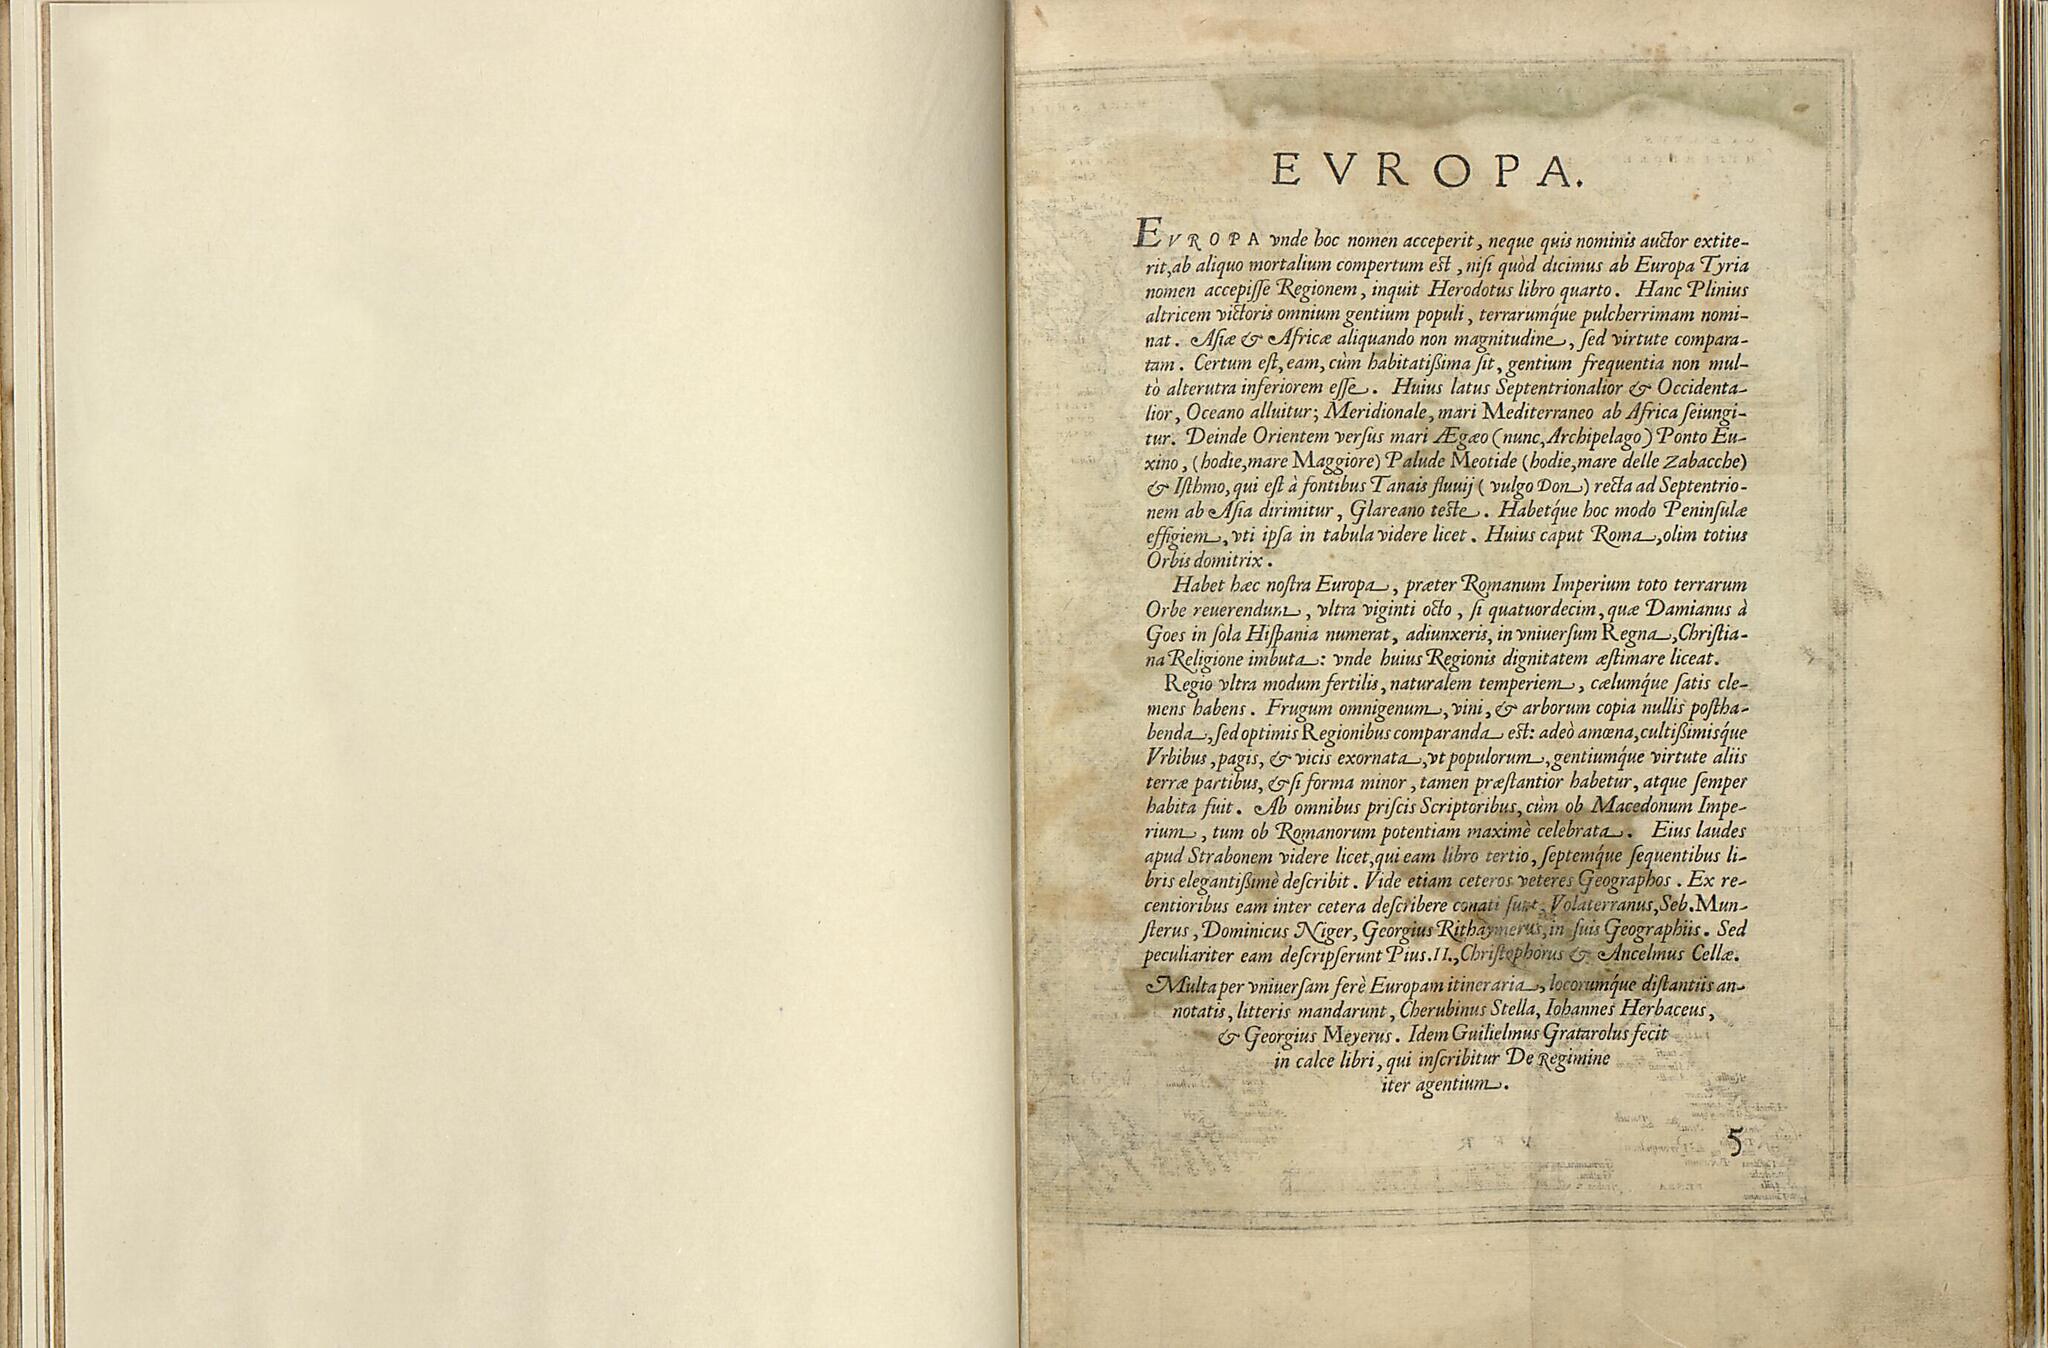 EVROPA.
EVROPA vnde hoc nomen acceperit, neque quis nominis auctor extite-
rit, ab aliquo mortalium compertum est, nisi quòd dicimus ab Europa Tyria
nomen accepisse Regionem, inquit Herodotus libro quarto. Hanc Plinius
altricem victoris omnium gentium populi, terrarumq́ue pulcherrimam nomi-
nat. Asiæ & Africæ aliquando non magnitudine, sed virtute compara-
tam. Certum est, eam, cùm habitatißima sit, gentium frequentia non mul-
tò alterutra inferiorem esse. Huius latus Septentrionalior & Occidenta-
lior, Oceano alluitur; Meridionale, mari Mediterraneo ab Africa seiungi-
tur. Deinde Orientem versus mari Ægæo (nunc, Archipelago) Ponto Eu-
xino, (hodie, mare Maggiore) Palude Meotide (hodie, mare delle Zabacche)
& Isthmo, qui est à fontibus Tanais fluuij (vulgo Don) recta ad Septentrio-
nem ab Asia dirimitur, Glareano teste. Habetq́ue hoc modo Peninsulæ
effigiem, vti ipsa in tabula videre licet. Huius caput Roma, olim totius
Orbis domitrix.
Habet hæc nostra Europa, præter Romanum Imperium toto terrarum
Orbe reuerendum, vltra viginti octo, si quatuordecim, quæ Damianus à
Goes in sola Hispania numerat, adiunxeris, in vniuersum Regna, Christia-
na Religione imbuta: vnde huius Regionis dignitatem æstimare liceat.
Regio vltra modum fertilis, naturalem temperiem, cælumq́ue satis cle-
mens habens. Frugum omnigenum, vini, & arborum copia nullis postha-
benda, sed optimis Regionibus comparanda est: adeò amœna, cultißimisq́ue
Vrbibus, pagis, & vicis exornata, vt populorum, gentiumq́ue virtute aliis
terræ partibus, & si forma minor, tamen præstantior habetur, atque semper
habita fuit. Ab omnibus priscis Scriptoribus, cùm ob Macedonum Impe-
rium, tum ob Romanorum potentiam maximè celebrata. Eius laudes
apud Strabonem videre licet, qui eam libro tertio, septemq́ue sequentibus li-
bris elegantißimè describit. Vide etiam ceteros veteres Geographos. Ex re-
centioribus eam inter cetera describere conati sunt, Volaterranus, Seb. Mun-
sterus, Dominicus Niger, Georgius Rithaymerus, in suis Geographiis. Sed
peculiariter eam descripserunt Pius. II., Christophorus & Ancelmus Cellæ.
Multa per vniuersam ferè Europam itineraria, locorumq́ue distantiis an-
notatis, litteris mandarunt, Cherubinus Stella, Iohannes Herbaceus,
& Georgius Meyerus. Idem Guilielmus Gratarolus fecit
in calce libri, qui inscribitur De Regimine
iter agentium.
5